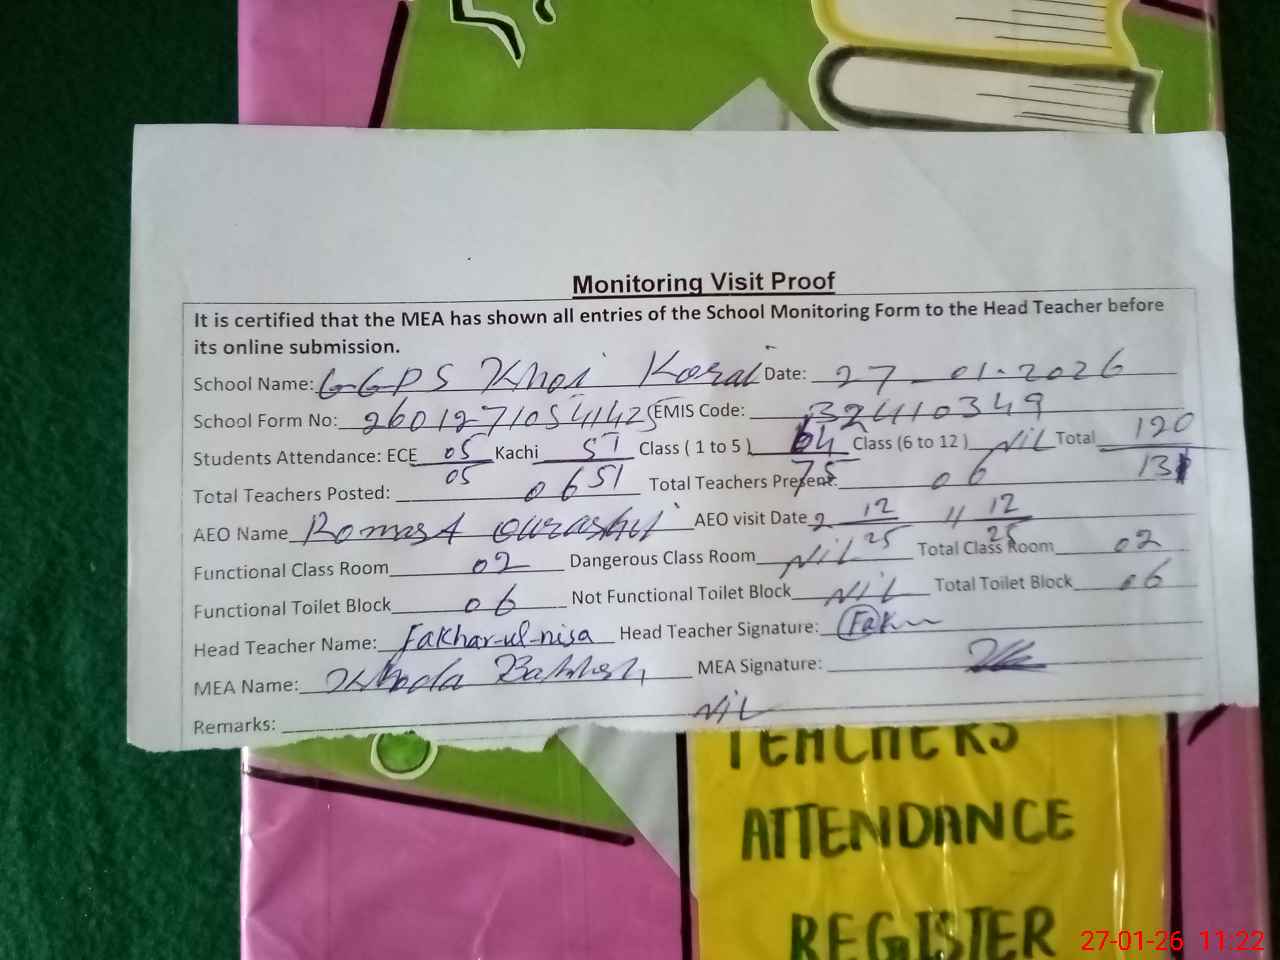 Monitoring Visit Proof
It is certified that the MEA has shown all entries of the School Monitoring Form to the Head Teacher before
its online submission.
School Name: GGPS Khoi Korai Date: 27-01-2026
School Form No: EMIS Code: 32410349
Students Attendance: ECE 05/05 Kachi 51/51 Class ( 1 to 5 ) 64/75 Class (6 to 12 ) NIL Total 120/131
Total Teachers Posted: 06 Total Teachers Present: 06
AEO Name AEO visit Date 2 12/25 11 12/25
Functional Class Room 02 Dangerous Class Room NIL Total Class Room 02
Functional Toilet Block 06 Not Functional Toilet Block NIL Total Toilet Block 06
Head Teacher Name: Fakhar-ul-nisa Head Teacher Signature:
MEA Name: Khuda Bakhsh MEA Signature:
Remarks: NIL
TEACHERS
ATTENDANCE
REGISTER
27-01-26 11:22